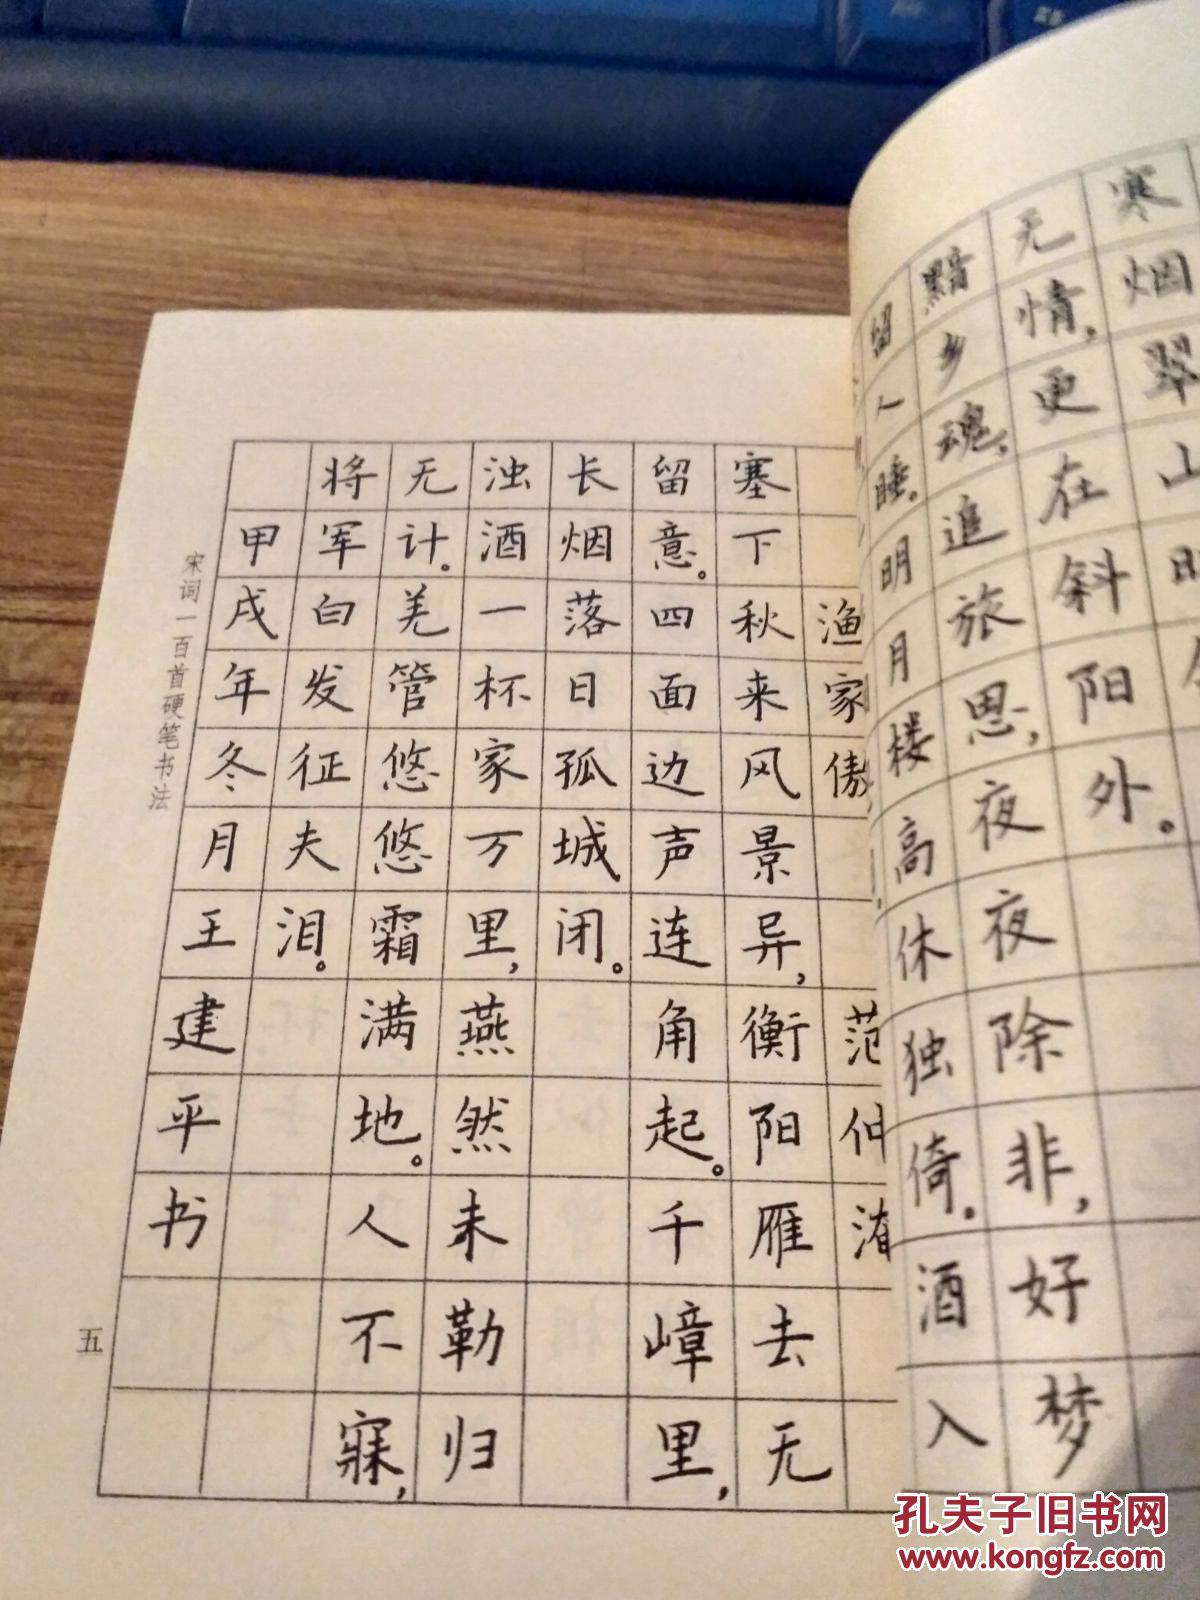 寒烟翠山
无情，更在斜阳外。
黯乡魂，追旅思，夜夜除非，好梦
留人睡。明月楼高休独倚。酒入
渔家傲 范仲
塞下秋来风景异，衡阳雁去无
留意。四面边声连角起。千嶂里，
长烟落日孤城闭。
浊酒一杯家万里，燕然未勒归
无计。羌管悠悠霜满地。人不寐，
将军白发征夫泪。
甲戌年冬月王建平书
宋词一百首硬笔书法
五
孔夫子旧书网
www.kongfz.com